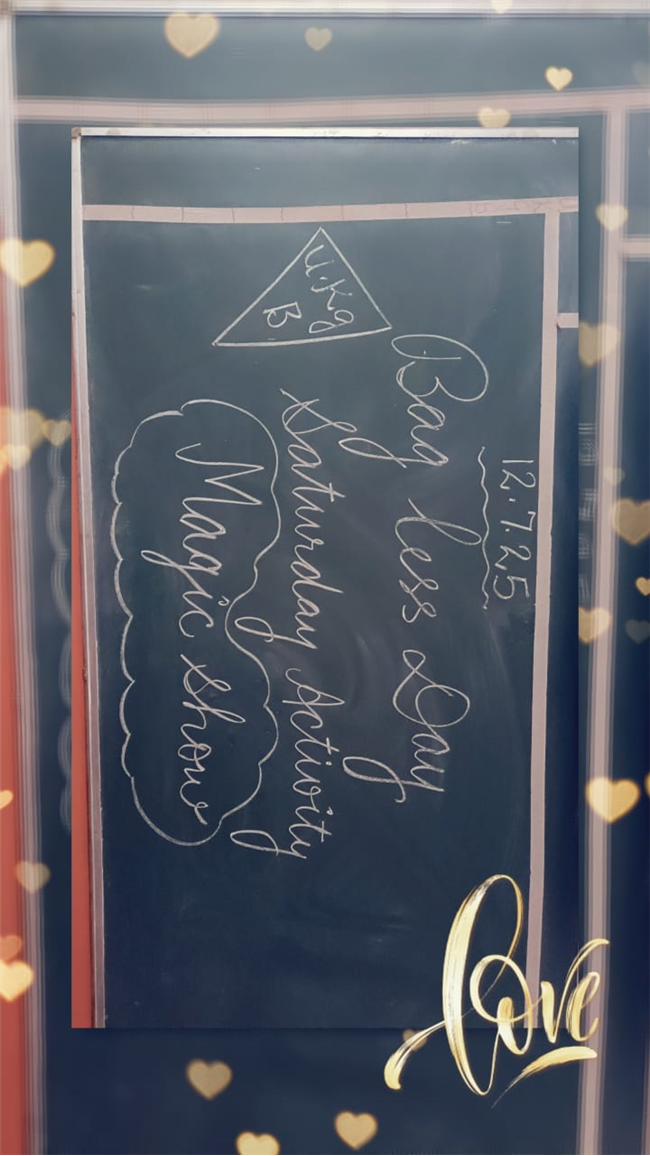 12.7.25
Bag less Day
U.Kg
B
Saturday Activity
Magic show
Love